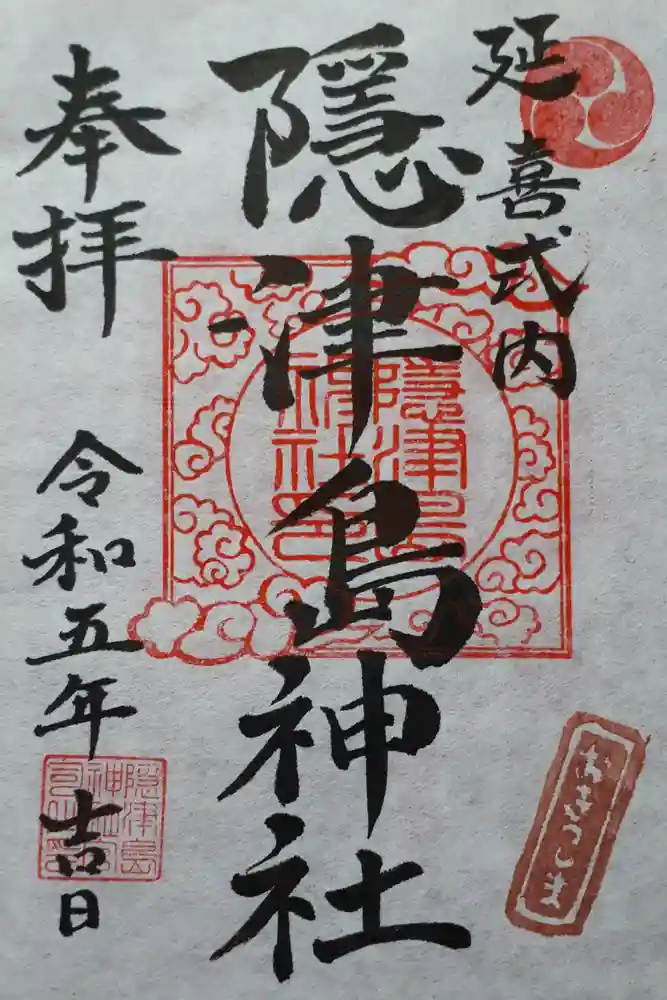 延喜式内
隱津島神社
奉拝
令和五年
吉日
隱津島
神社印
おきつしま
隱津島
神社宮